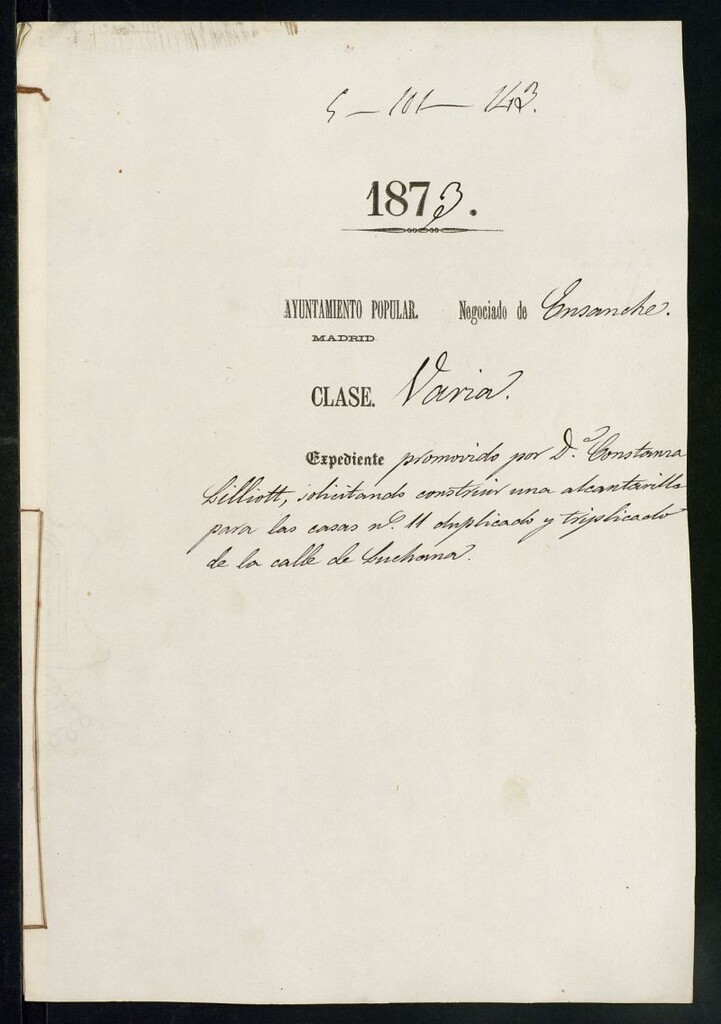 5 — 101 — 143.
1873.
AYUNTAMIENTO POPULAR. Negociado de Ensanche.
MADRID
CLASE. Varia.
Expediente promovido por D.ª Constanza
Lilliott, solicitando construir una alcantarilla
para las casas nº. 11 duplicado y triplicado
de la calle de Luchana.